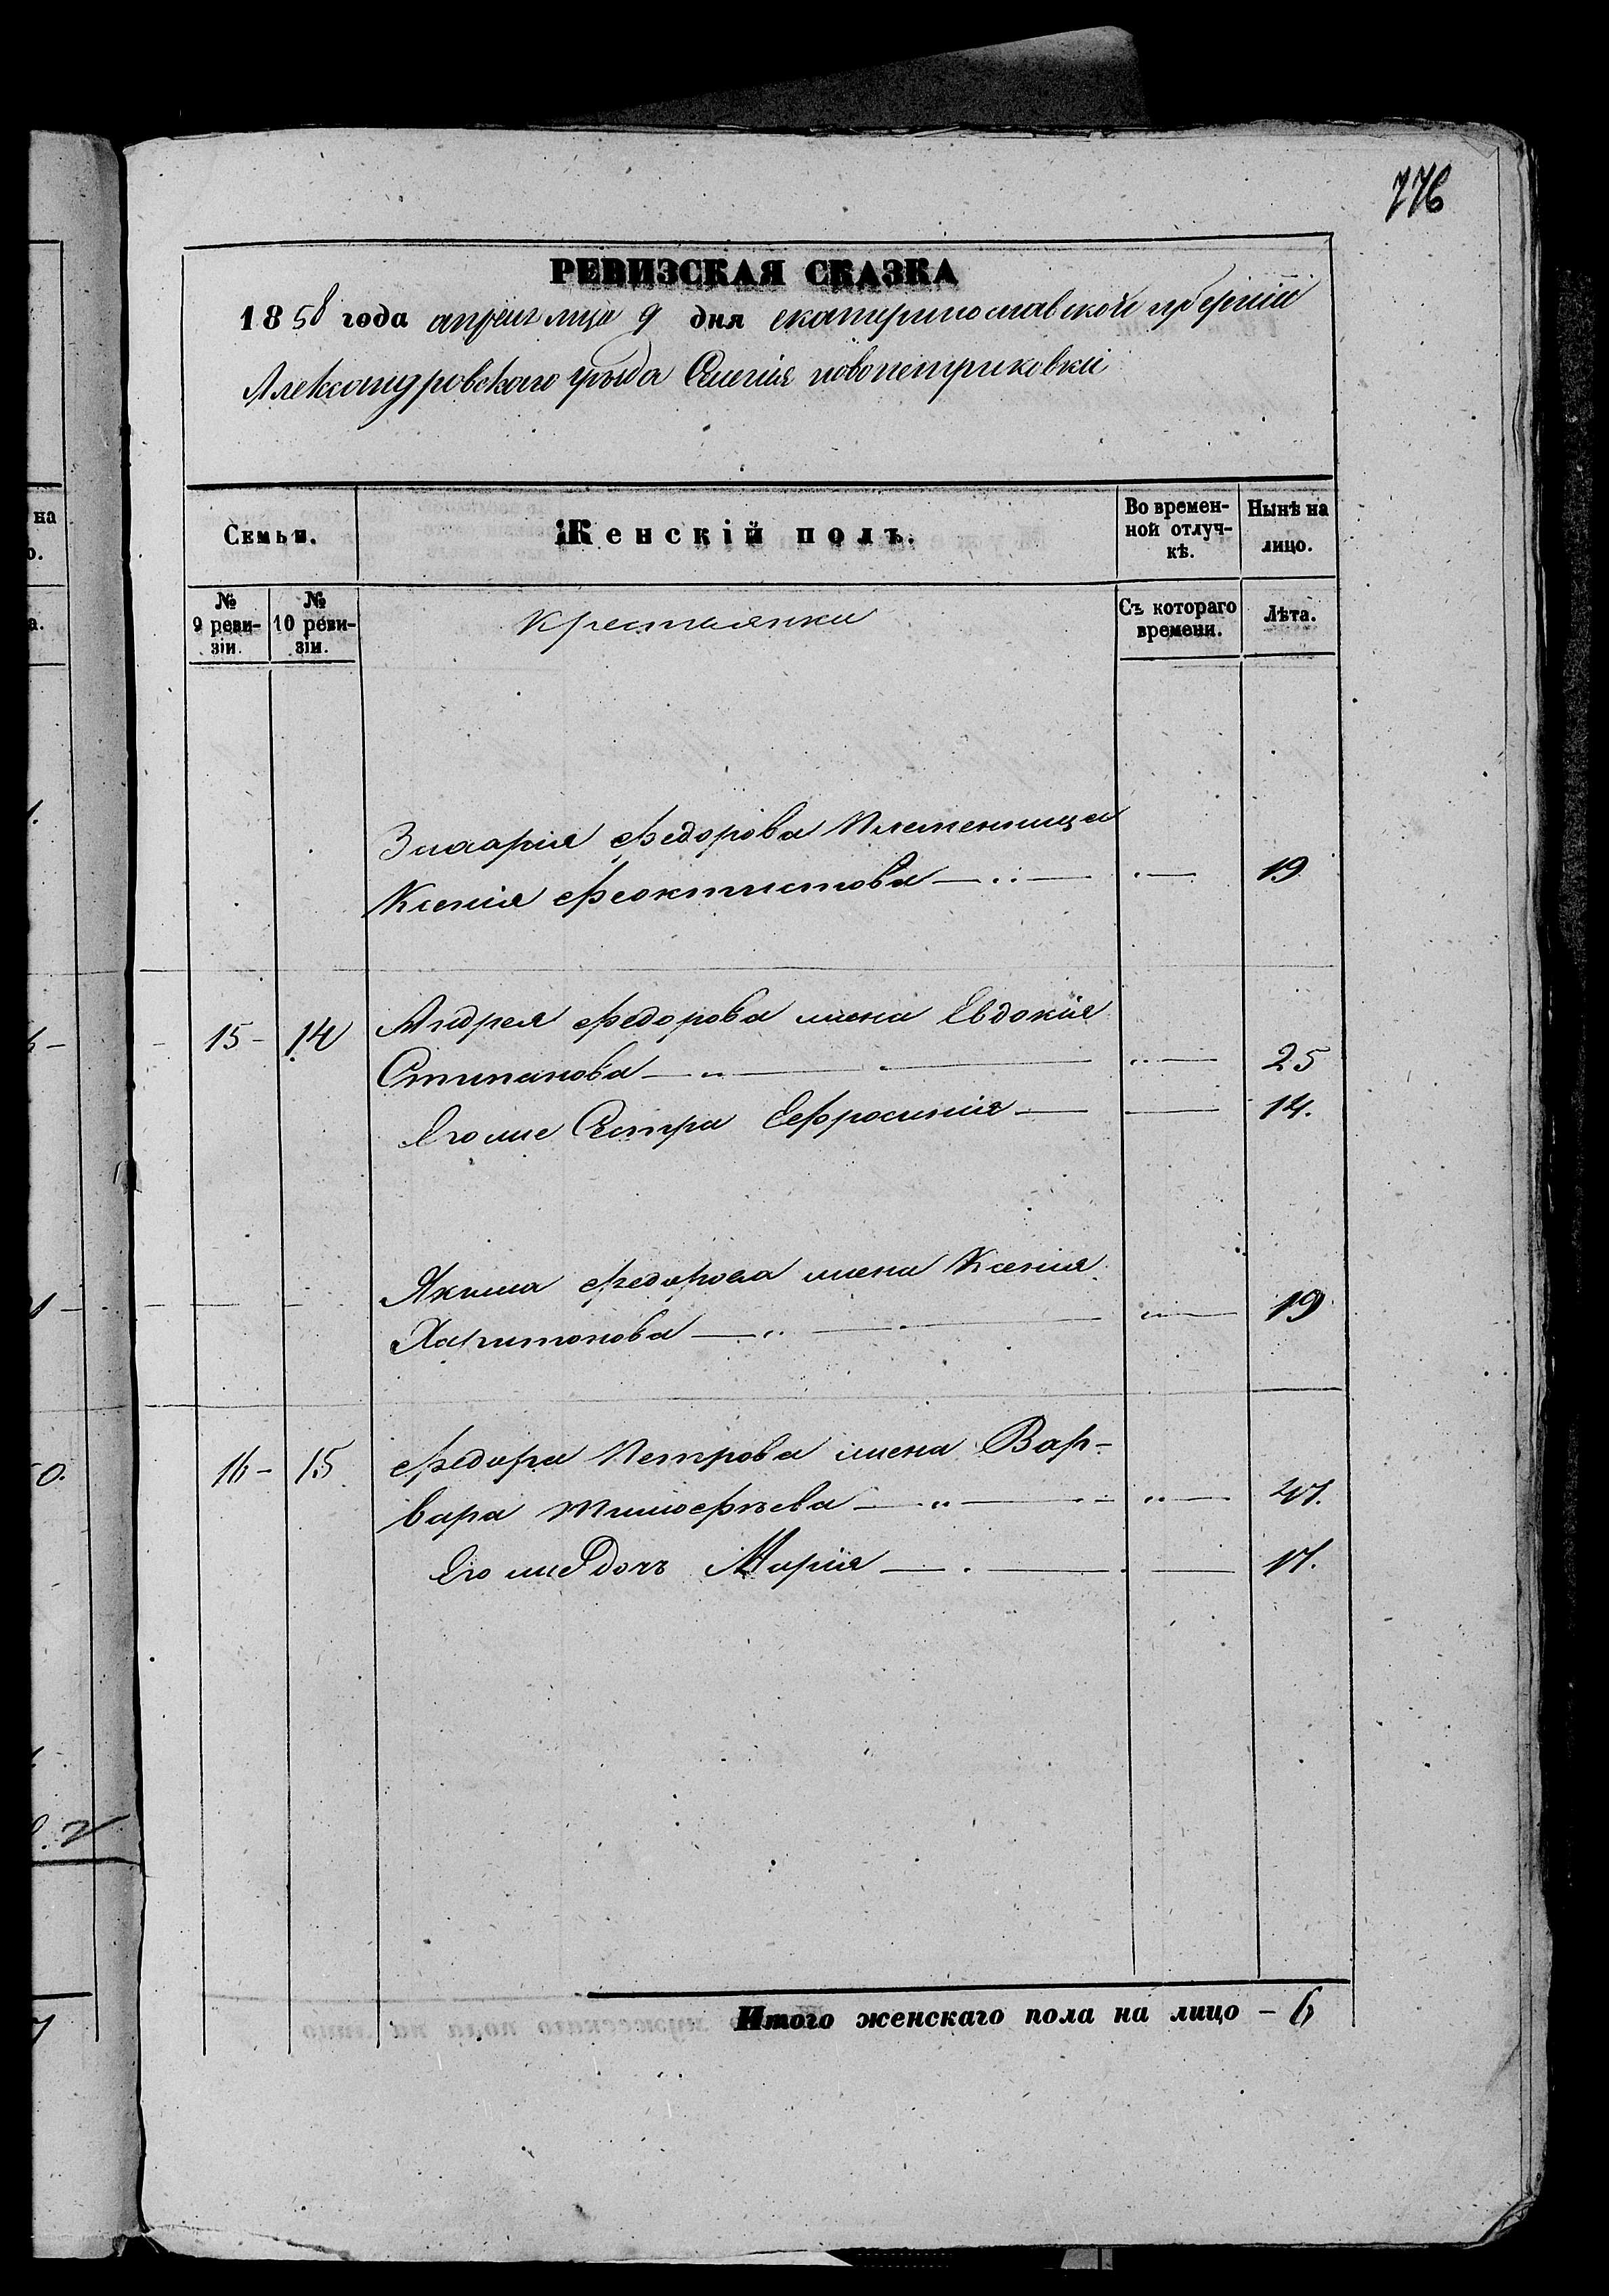 776
РЕВИЗСКАЯ СКАЗКА
1858 года апреля мца 9 дня екатеринославской губернии
Александровскаго уезда Селенія новопетриковки
на
о.
а.
Семьи.
Женскій полъ.
Во времен-
ной отлуч-
кѣ.
Нынѣ на
лицо.
№
9 реви-
зіи.
№
10 реви-
зіи.
Крестьянки
Съ котораго
времени.
Лѣта.
Федорова Племенница
Ксенія Феоктистова 19
15 - 14 Андрея Федорова жена Евдокія
Степанова 25
Его же Сестра Ефросинія 14.
Якима Федорова жена Ксенія
Харитонова 19
16 - 15 Федора Петрова жена Вар-
вара Тимофѣева 47.
Его же дочь Марія 17.
Итого женскаго пола на лицо - 6